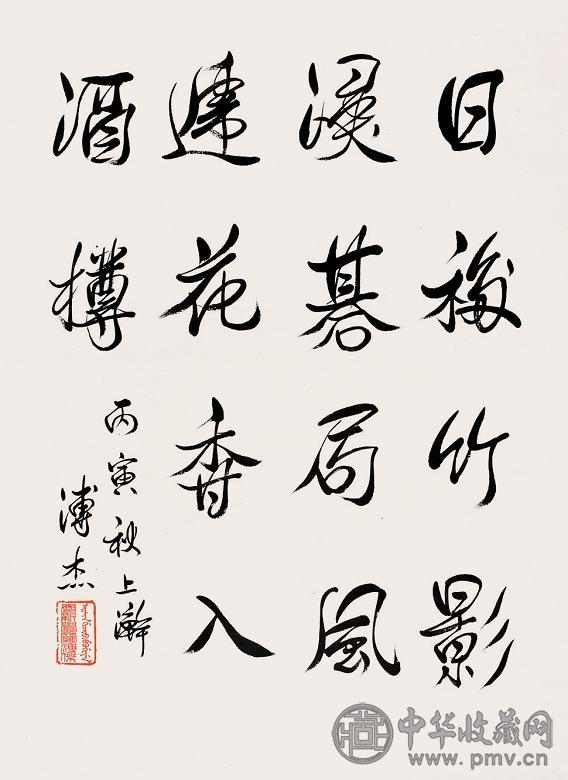 日移竹影
浸碁局風
遞花香入
酒樽
丙寅秋上澣
溥杰
中华收藏网
www.pmv.cn